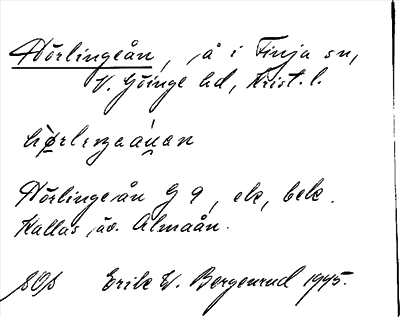 Hörlingeån, å i Finja sn,
V. Göinge hd, Krist. l.
Hörlingeån G 9, ek, bek.
Kallas äv. Almaån.
SOS Erik W. Bergenrud 1945.